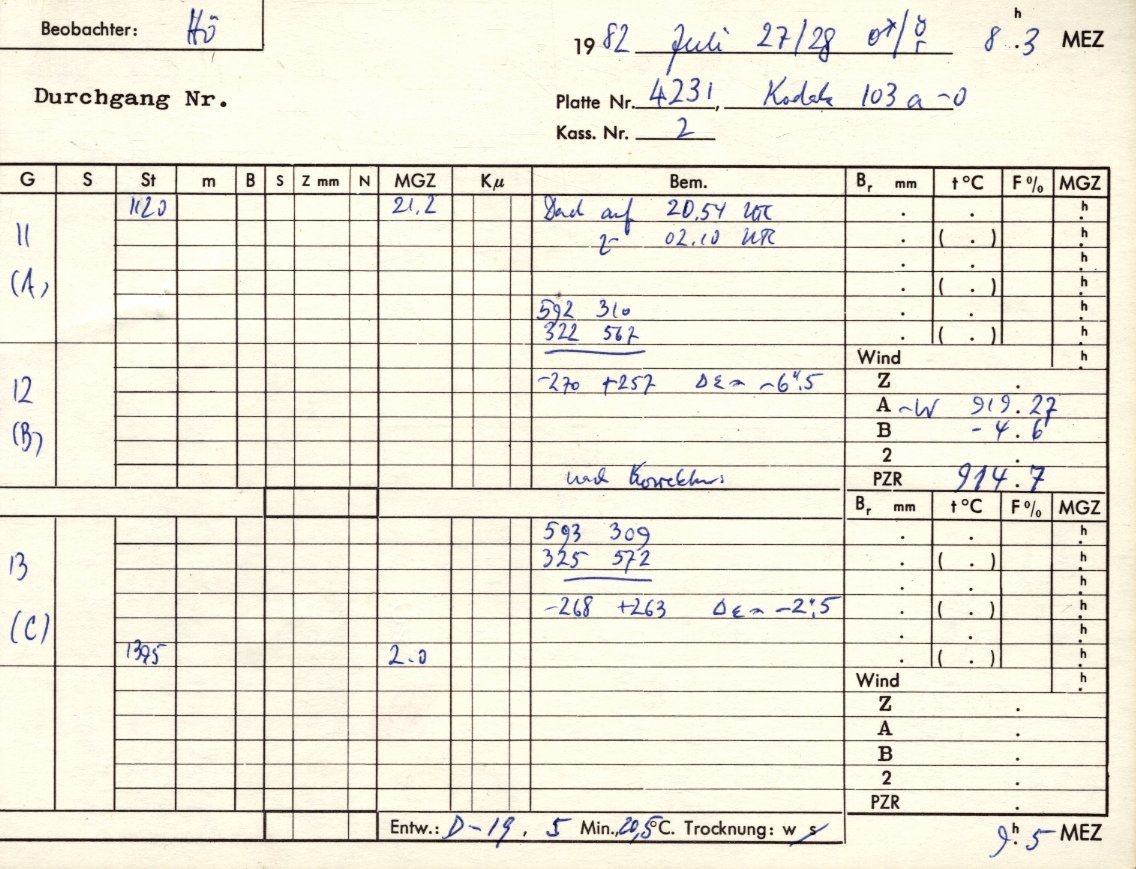 Beobachter: Hö
19 82 Juli 27/28 8.ʰ3 MEZ
Durchgang Nr.
Platte Nr. 4231, Kodak 103 a-O
Kass. Nr. 2
G S St m B S Z mm N MGZ Kμ Bem. Bᵣ mm t °C F % MGZ
1120 21,2 Dach auf 20.54 UTC . . h
11 z 02.10 UTC . ( . ) h
. . h
(A) . ( . ) h
592 310 . . h
322 567 . ( . ) h
Wind h
12 -270 +257 Δε = -6".5 Z .
A ~W 919.27
(B) B -4.6
2 .
nach Korrektur: PZR 914.7
Bᵣ mm t °C F % MGZ
593 309 . . h
13 325 572 . ( . ) h
. . h
-268 +263 Δε = -2".5 . ( . ) h
(C) . . h
1395 2.0 . ( . ) h
Wind h
Z .
A .
B .
2 .
PZR .
Entw.: D-19, 5 Min., 20,5°C. Trocknung: w s
9.ʰ5 MEZ